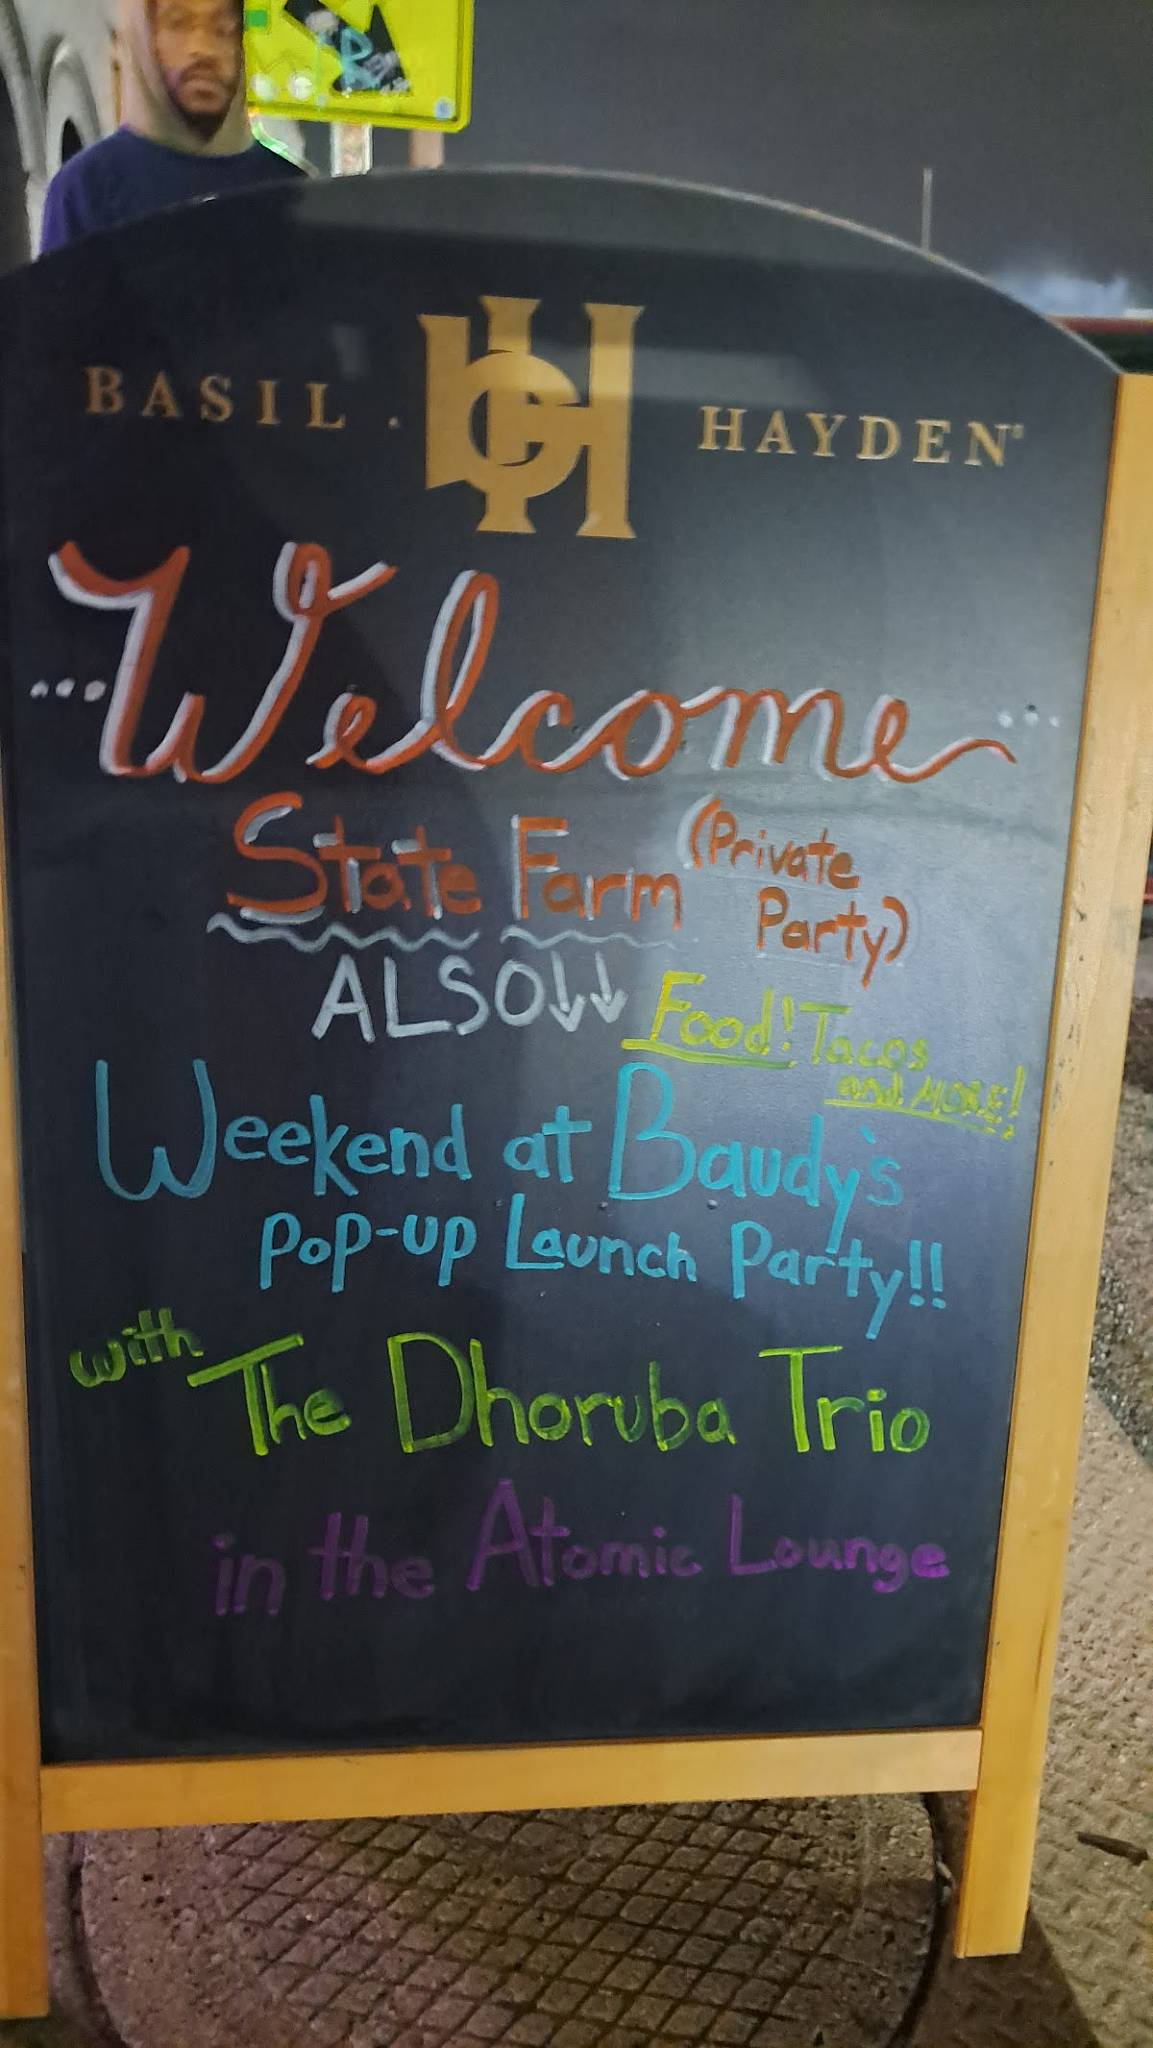 BASIL . bH HAYDEN®
...Welcome...
State Farm (Private
Party)
ALSO↓↓ Food! Tacos
and MORE!
Weekend at Baudy's
Pop-up Launch Party!!
with The Dhoruba Trio
in the Atomic Lounge